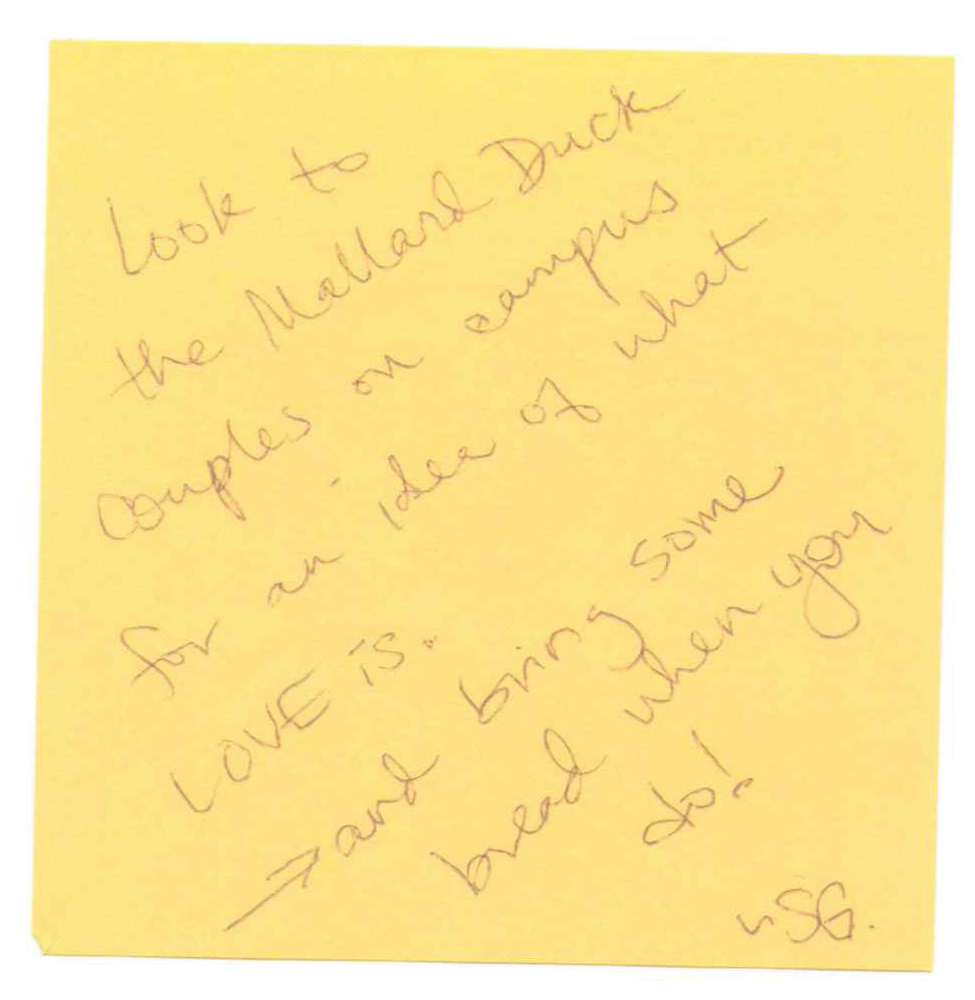 Look to
the Mallard Duck
couples on campus
for an idea of what
LOVE is.
→ and bring some
bread when you
do!
~SG.